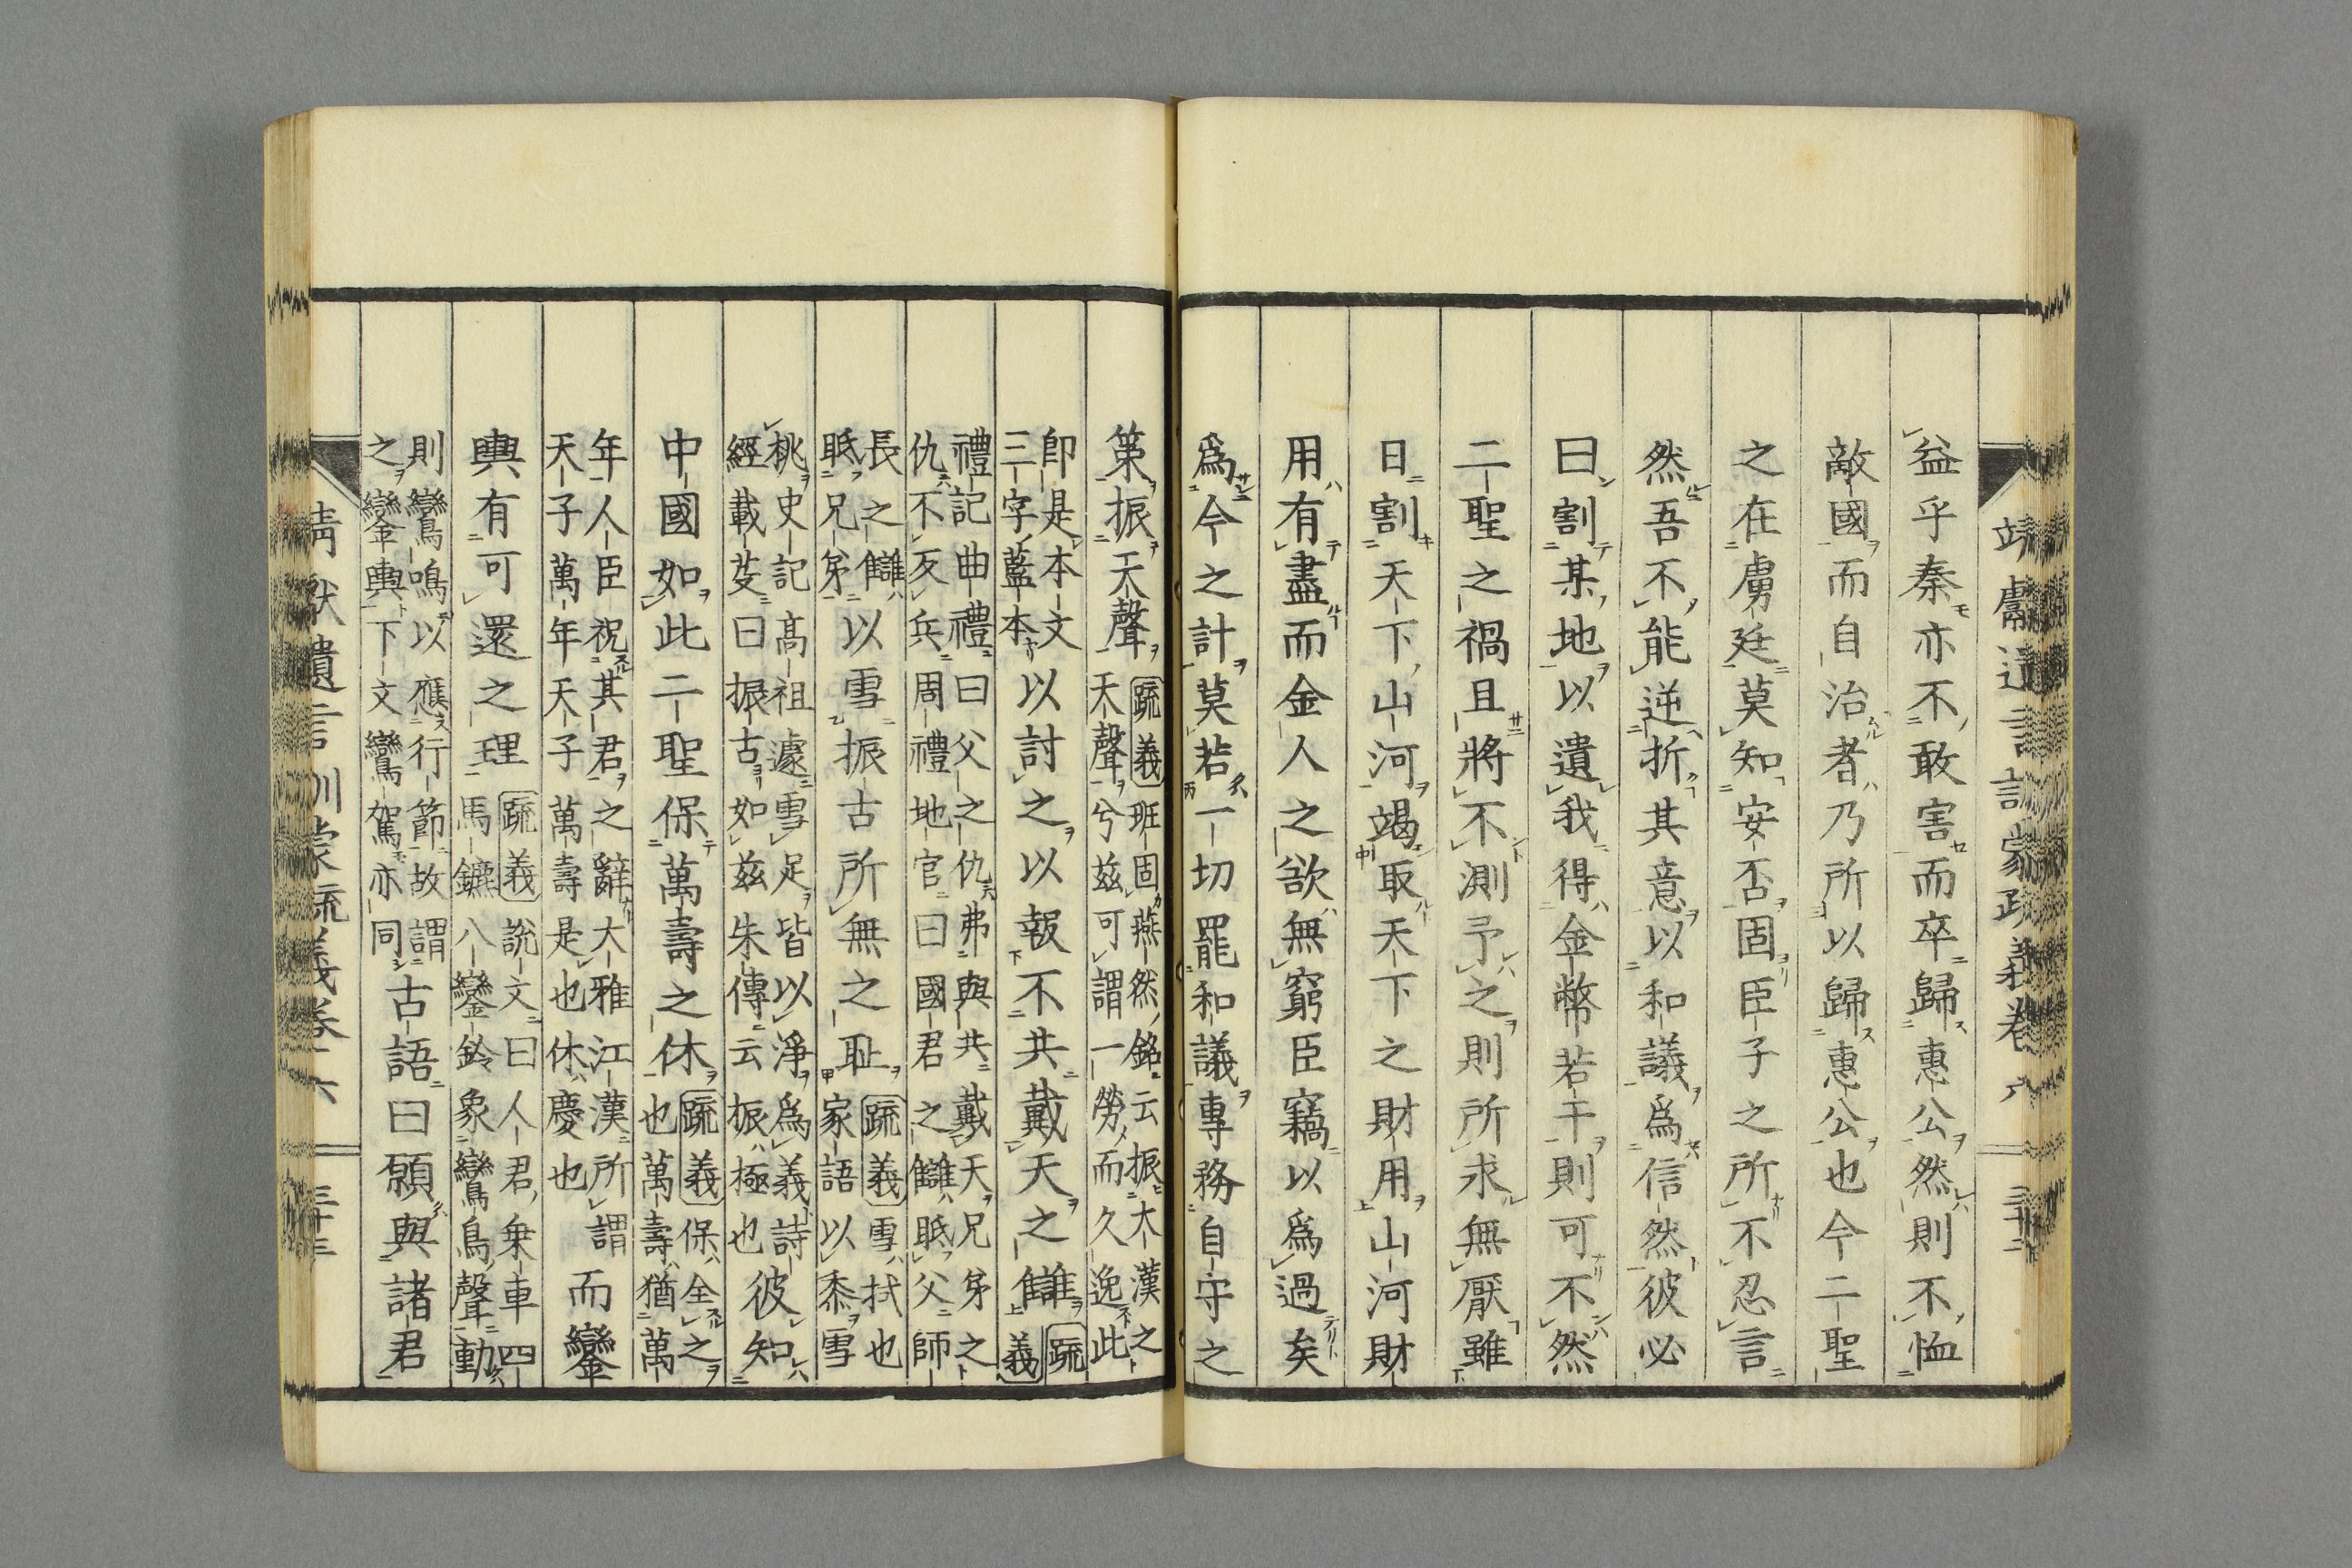 靖獻遺言訓蒙疏義卷六 三十二
益乎秦亦不敢害而卒歸惠公然則不恤
敵國而自治者乃所以歸惠公也今二聖
之在虜廷莫知安否固臣子之所不忍言
然吾不能逆折其意以和議爲信然彼必
曰割某地以遺我得金幣若干則可不然
二聖之禍且將不測予之則所求無厭雖
日割天下山河竭取天下之財用山河財
用有盡而金人之欲無窮臣竊以爲過矣
爲今之計莫若一切罷和議專務自守之
策振天聲
疏義班固燕然銘云振大漢之
天聲兮茲可謂一勞而久逸此
卽是本文
三字藍本
以討之以報不共戴天之讎
疏
義
禮記曲禮曰父之仇弗與共戴天兄弟之
仇不反兵周禮地官曰國君之讎眂父師
長之讎
眂兄弟
以雪振古所無之耻
疏義雪拭也
家語以黍雪
桃史記高祖遽雪足皆以淨爲義詩
經載芟曰振古如茲朱傳云振極也
彼知
中國如此二聖保萬壽之休
疏義保全之
也萬壽猶萬
年人臣祝其君之辭大雅江漢所謂
天子萬年天子萬壽是也休慶也
而鑾
輿有可還之理
疏義說文曰人君乘車四
馬鑣八鑾鈴象鸞鳥聲動
則鸞鳴以應行節故謂
之鑾輿下文鸞駕亦同
古語曰願與諸君
靖獻遺言訓蒙疏義卷六 三十三